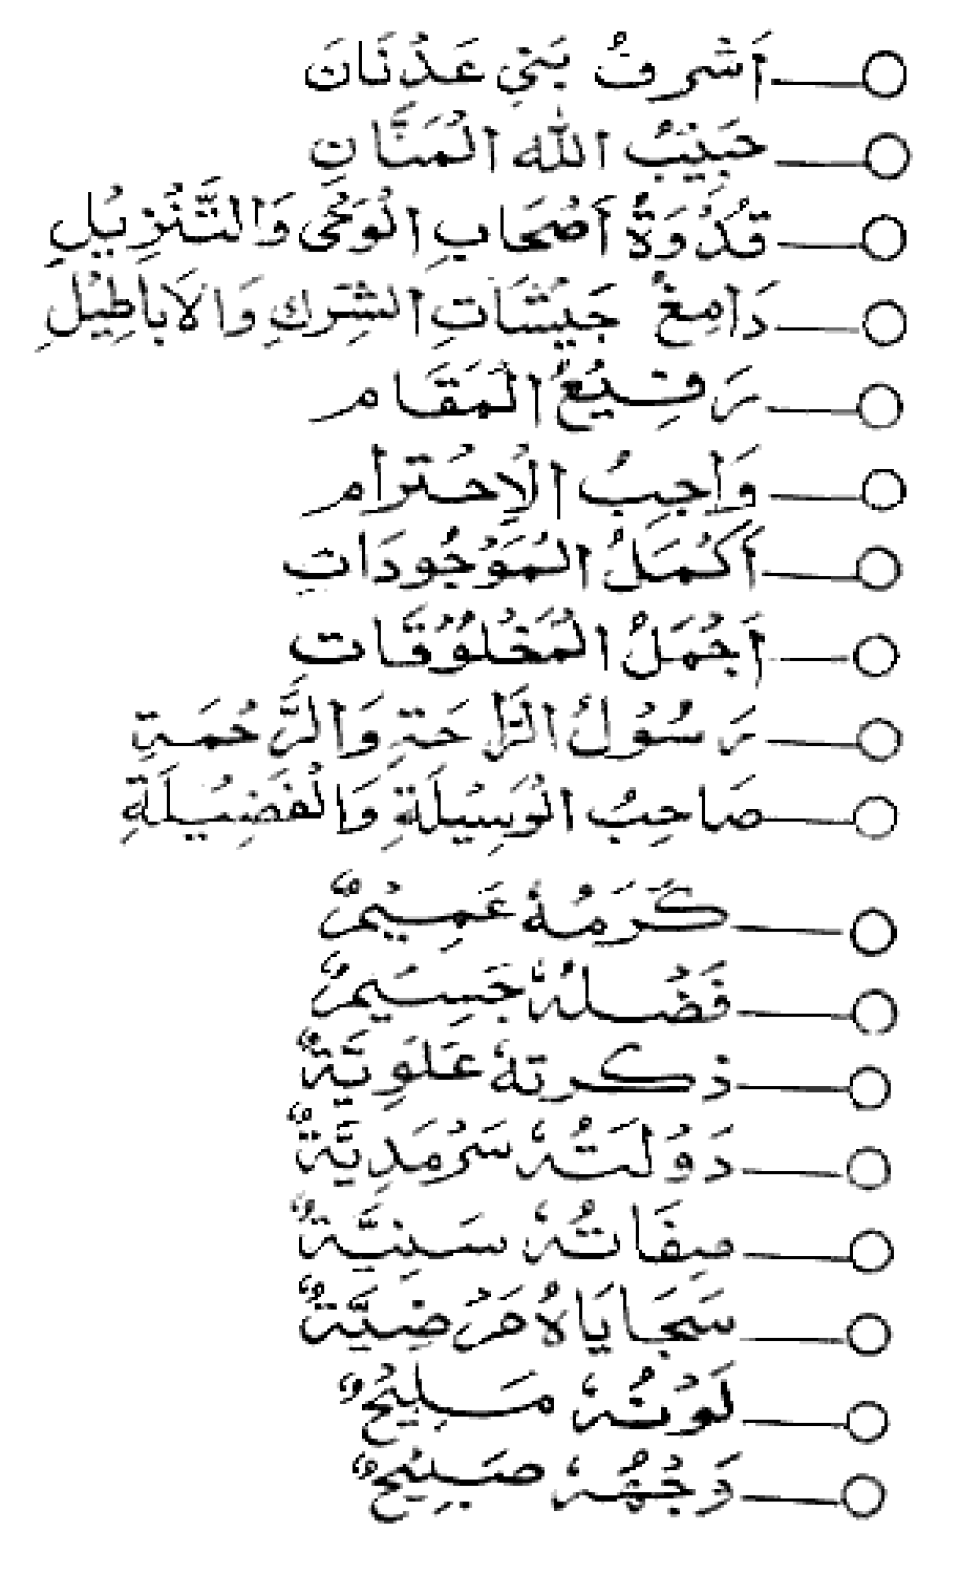 أَشْرَفُ بَنِي عَدْنَانَ
حَبِيْبُ اللّٰه الْمَنَّانِ
قُدْوَةُ أَصْحَابِ الْوَحْيِ وَالتَّنْزِيْلِ
دَامِغُ جَيْشَاتِ الشِّرْكِ وَالْاَبَاطِيْلِ
رَفِيْعُ الْمَقَام
وَاجِبُ الْاِحْتِرَام
أَكْمَلُ الْمَوْجُودَاتِ
أَجْمَلُ الْمَخْلُوْقَات
رَسُوْلُ الرَّاحَةِ وَالرَّحْمَةِ
صَاحِبُ الْوَسِيْلَةِ وَالْفَضِيْلَةِ
كَرَمُهُ عَمِيْمٌ
فَضْلُهُ جَسِيْمٌ
ذكرته عَلَوِيَّةٌ
دَوْلَتُهُ سَرْمَدِيَّةٌ
صِفَاتُهُ سَنِيَّةٌ
سَجَايَاهُ مَرْضِيَّةٌ
لَوْنُهُ مَلِيْحٌ
وَجْهُهُ صَبِيْحٌ